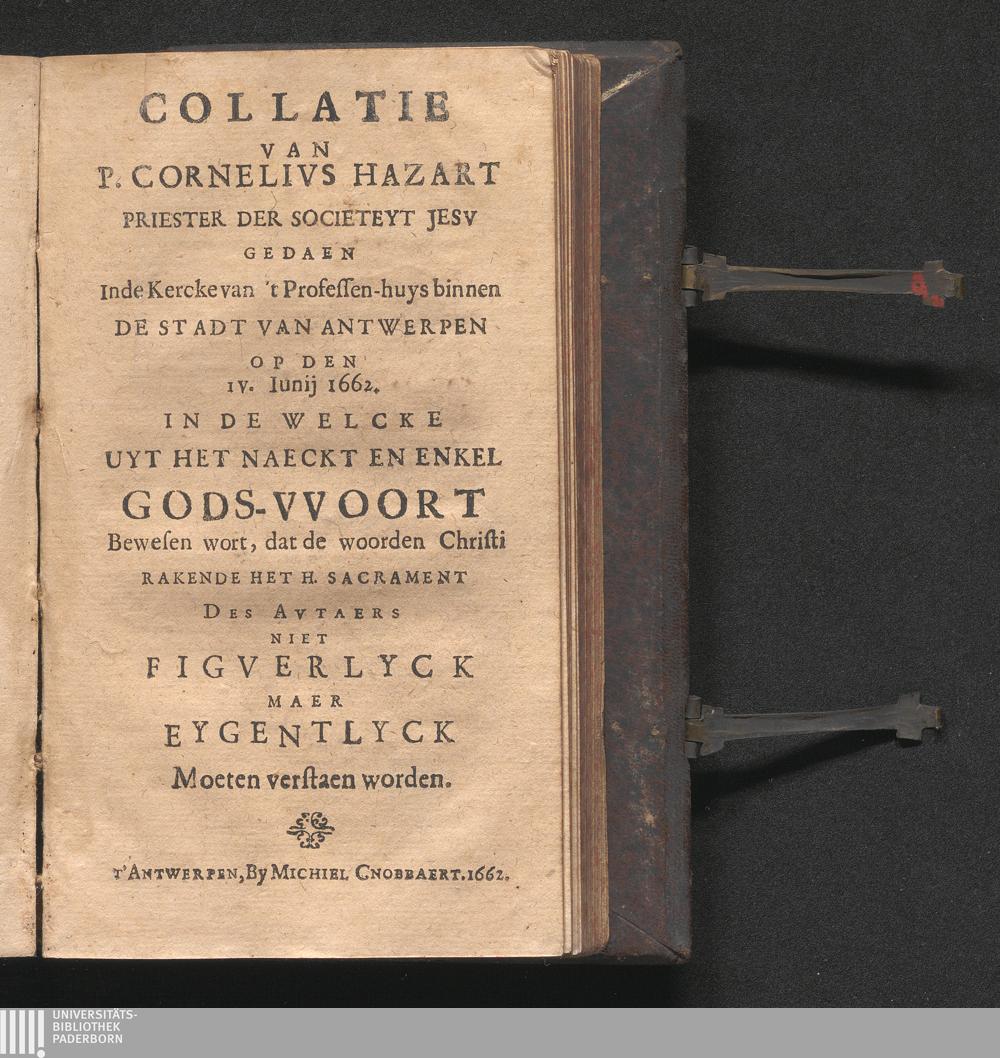 COLLATIE
VAN
P. CORNELIVS HAZART
PRIESTER DER SOCIETEYT JESV
GEDAEN
Inde Kercke van 't Professen-huys binnen
DE STADT VAN ANTWERPEN
OP DEN
IV. Iunij 1662.
IN DE WELCKE
UYT HET NAECKT EN ENKEL
GODS-VVOORT
Bewesen wort, dat de woorden Christi
RAKENDE HET H. SACRAMENT
DES AVTAERS
NIET
FIGVERLYCK
MAER
EYGENTLYCK
Moeten verstaen worden.
T'ANTWERPEN, By MICHIEL CNOBBAERT. 1662.
UNIVERSITÄTS-
BIBLIOTHEK
PADERBORN